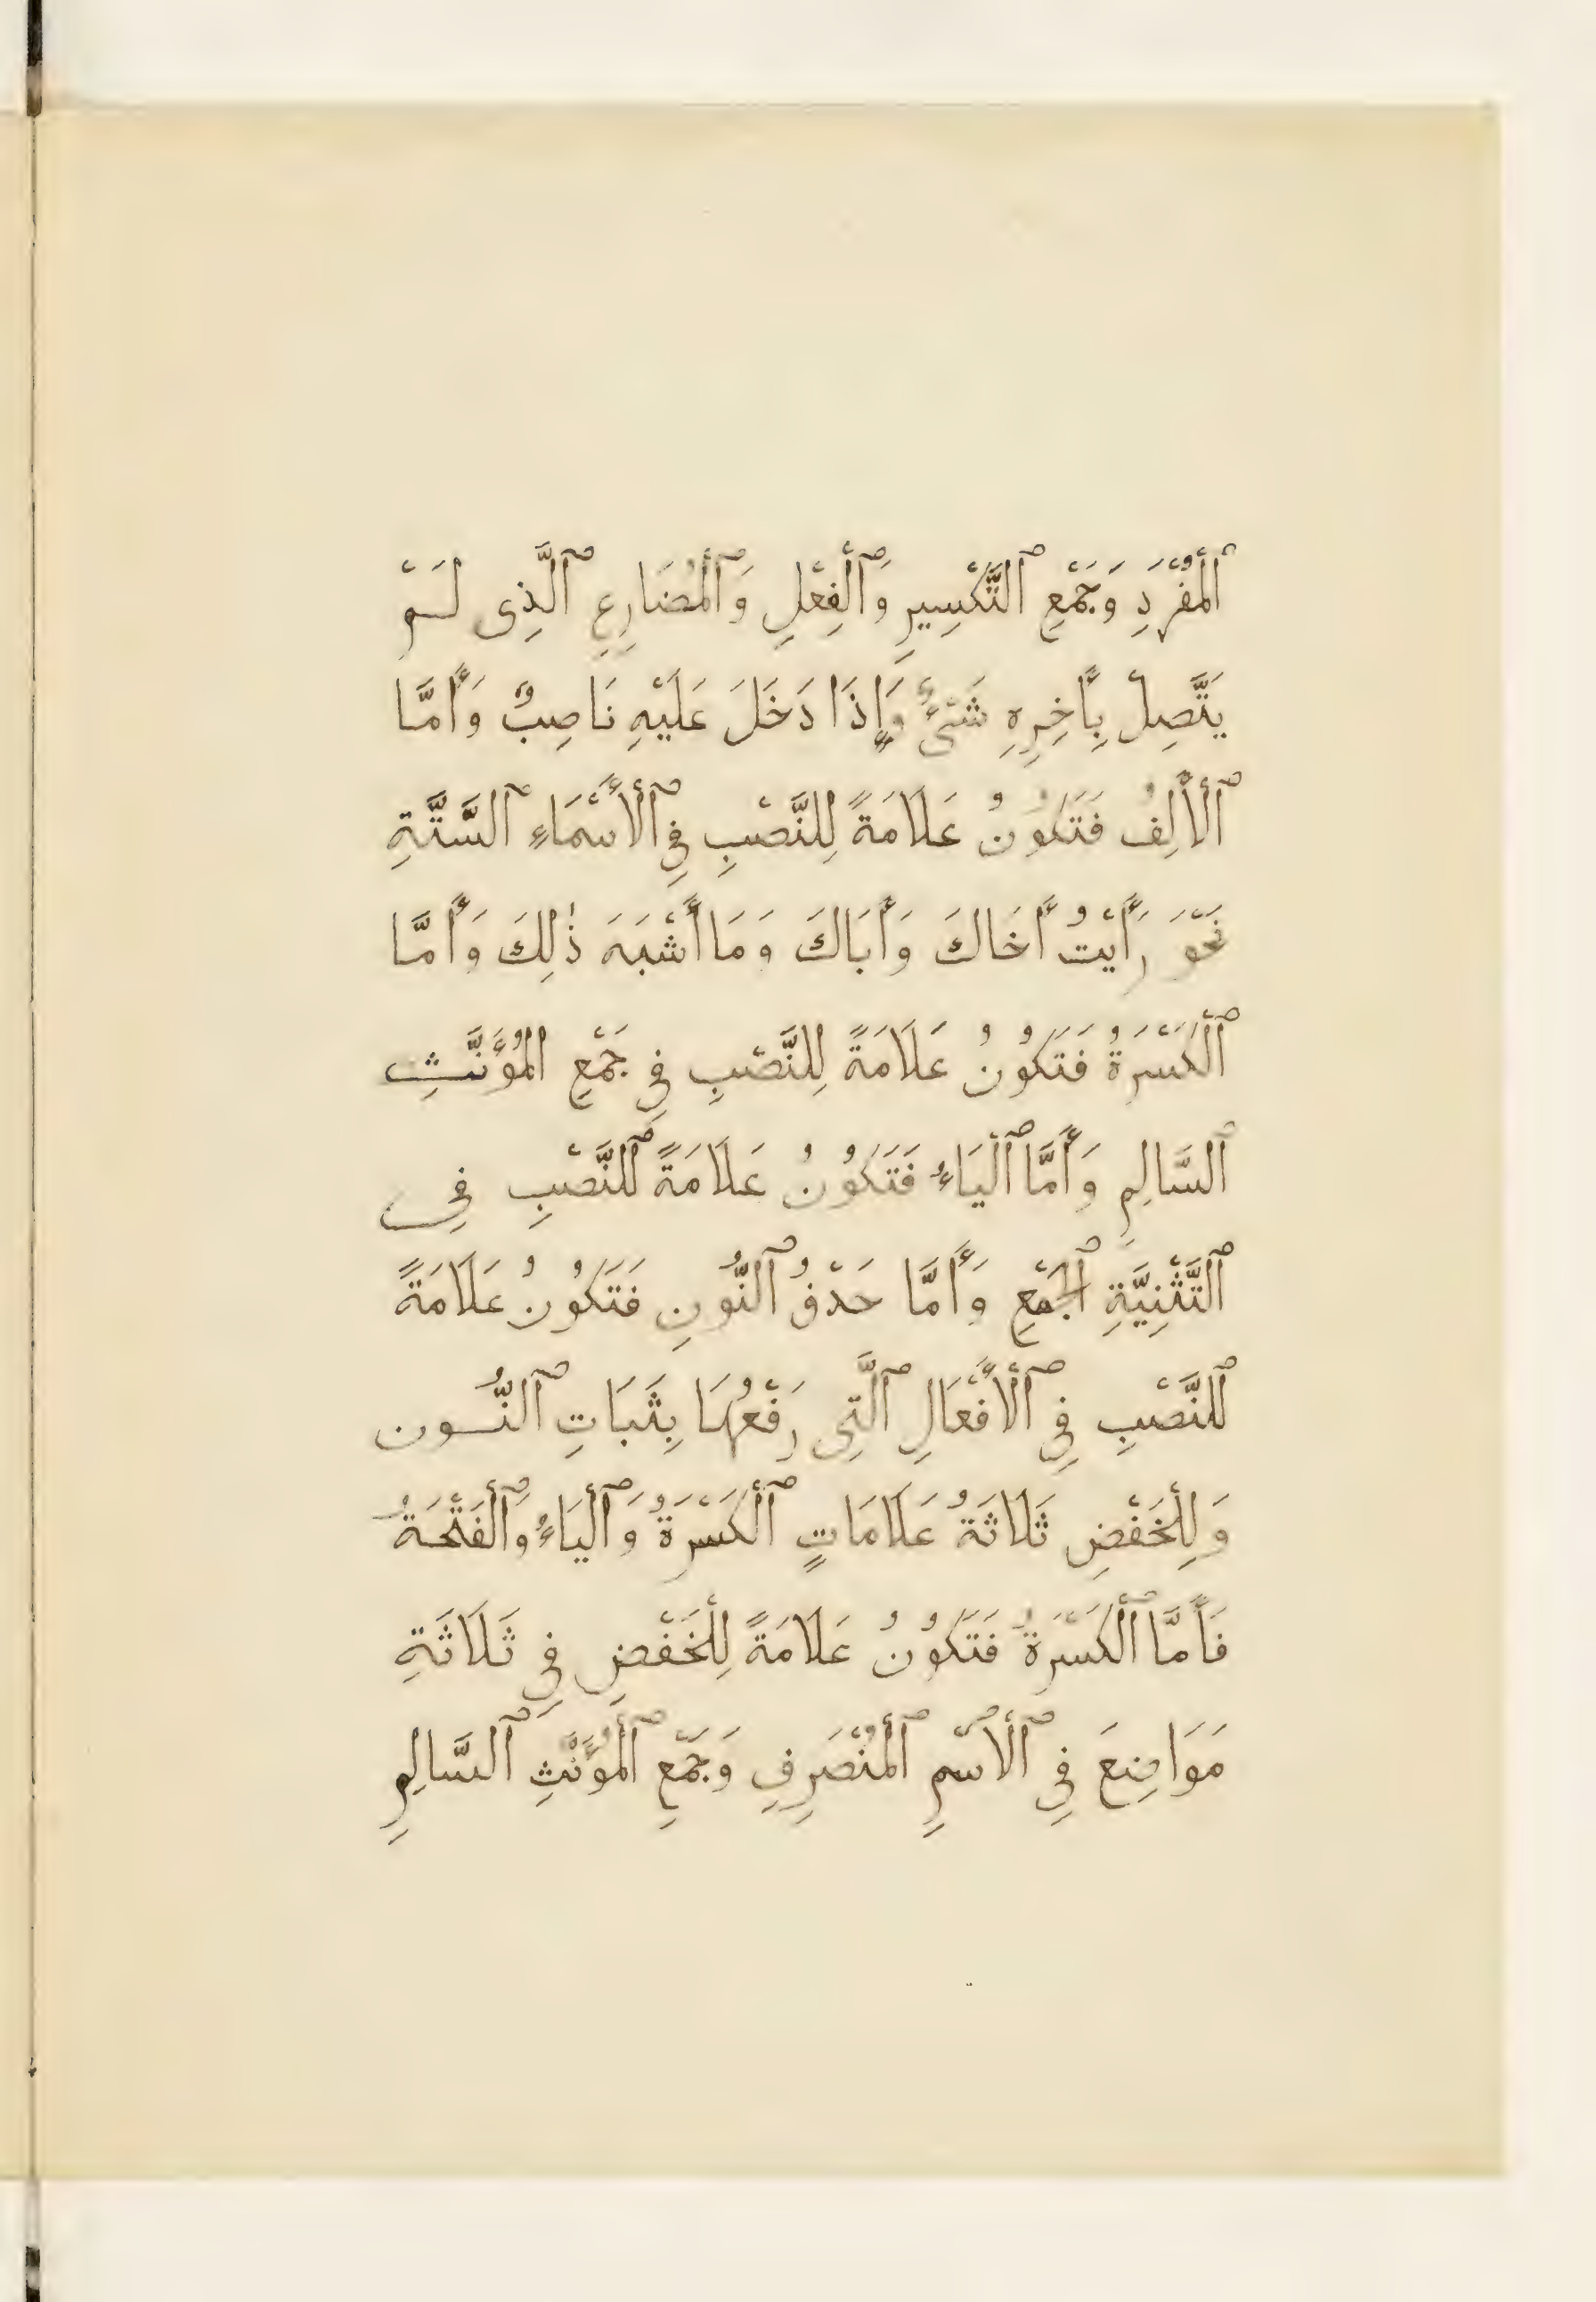 ٱلْمُفْرَدِ وَجَمْعِ ٱلتَّكْسِيرِ وَٱلْفِعْلِ وَٱلْمُضَارِعِ ٱلَّذِى لَمْ
يَتَّصِلْ بِأَخِرِهِ شَىْءٌ وَإِذَا دَخَلَ عَلَيْهِ نَاصِبٌ وَأَمَّا
ٱلْأَلِفُ فَتَكُونُ عَلَامَةً لِلنَّصْبِ فِي ٱلْأَسْمَاءِ ٱلسَّتَّةِ
نَحْوَ رَأَيْتُ أَخَاكَ وَأَبَاكَ وَمَا أَشْبَهَ ذٰلِكَ وَأَمَّا
ٱلْكَسْرَةُ فَتَكُونُ عَلَامَةً لِلنَّصْبِ فِي جَمْعِ المُؤَنَّثِ
ٱلسَّالِمِ وَأَمَّا ٱلْيَاءُ فَتَكُونُ عَلَامَةً لٱلنَّصْبِ فِى
ٱلتَّثْنِيَّةِ ٱلْجَمْعِ وَأَمَّا حَذْفُ ٱلنُّونِ فَتَكُونُ عَلَامَةً
لٱلنَّصْبِ فِي ٱلْأَفْعَالِ ٱلَّتِى رَفْعُهَا بِثَبَاتِ ٱلنُّون
وَلِلْخَفْضِ ثَلَاثَةُ عَلَامَاتٍ ٱلْكَسْرَةُ وَٱلْيَاءُ وَٱلْفَتْحَةُ
فَأَمَّا ٱلْكَسْرَةُ فَتَكُونُ عَلَامَةً لِلْخَفْضِ فِي ثَلَاثَةِ
مَوَاضِعَ فِي ٱلْاسْمِ ٱلْمُنْصَرِفِ وَجَمْعِ ٱلْمُؤَنَّثِ ٱلسَّالِمِ